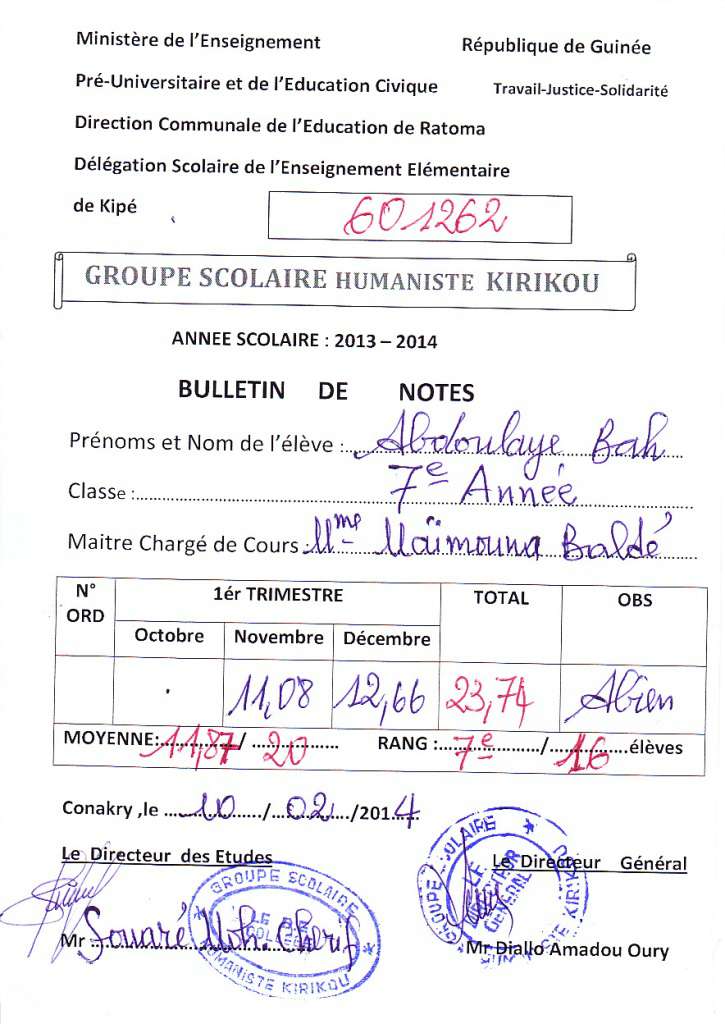 Ministère de l'Enseignement République de Guinée
Pré-Universitaire et de l'Education Civique Travail-Justice-Solidarité
Direction Communale de l'Education de Ratoma
Délégation Scolaire de l'Enseignement Elémentaire
de Kipé 601262
GROUPE SCOLAIRE HUMANISTE KIRIKOU
ANNEE SCOLAIRE : 2013 – 2014
BULLETIN DE NOTES
Prénoms et Nom de l'élève : Abdoulaye Bah
Classe : 7e Année
Maitre Chargé de Cours : Mme Maïmouna Baldé
N° ORD 1ér TRIMESTRE TOTAL OBS
Octobre Novembre Décembre
. 11,08 12,66 23,74 Abien
MOYENNE: 11,87 / 20 RANG : 7e / 16 élèves
Conakry ,le 10 / 02 /2014
Le Directeur des Etudes Le Directeur Général
GROUPE SCOLAIRE HUMANISTE KIRIKOU
GROUPE SCOLAIRE KIRIKOU LE DIRECTEUR GENERAL
Mr Souaré Moh. Cherif Mr Diallo Amadou Oury